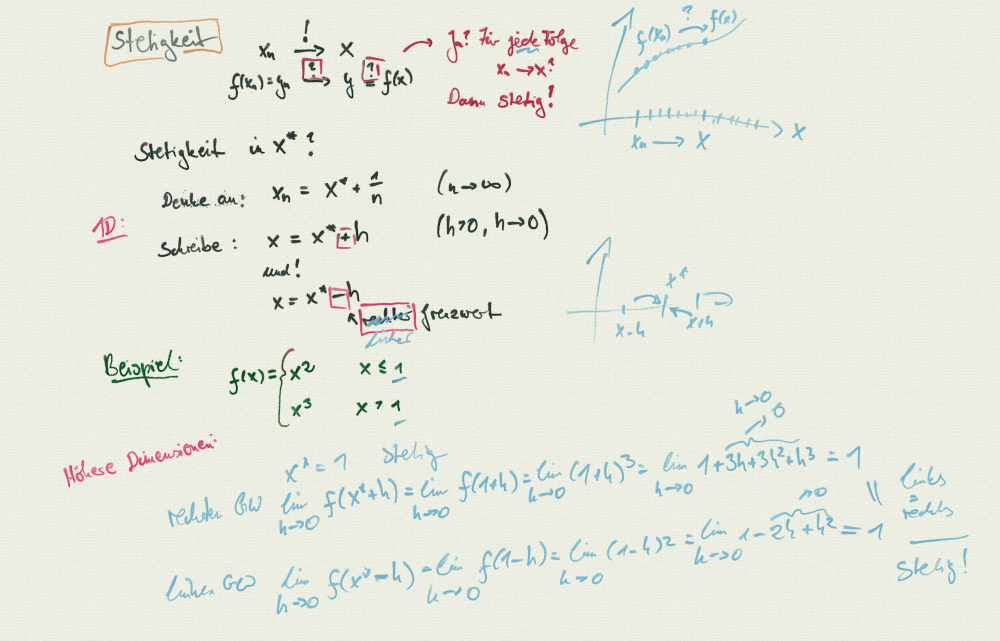 Stetigkeit
!
xₙ → x
? ?
f(xₙ) = yₙ → y = f(x)
→ Ja? Für jede Folge
xₙ → x?
Dann stetig!
?
f(xₙ) → f(x)
xₙ → x
x
Stetigkeit in x* ?
Denke an: xₙ = x* + 1/n (n→∞)
1D:
Schreibe: x = x* + h (h>0, h→0)
und!
x = x* - h
rechter Grenzwert
linker
x*
x-h x+h
Beispiel:
f(x) = { x² x ≤ 1
x³ x > 1
Höhere Dimensionen:
x* = 1 stetig
h→0
→ 0
rechten GW lim h→0 f(x*+h) = lim h→0 f(1+h) = lim h→0 (1+h)³ = lim h→0 1+3h+3h²+h³ = 1
links
=
rechts
→0
linken GW lim h→0 f(x*-h) = lim h→0 f(1-h) = lim h→0 (1-h)² = lim h→0 1-2h+h² = 1
stetig!